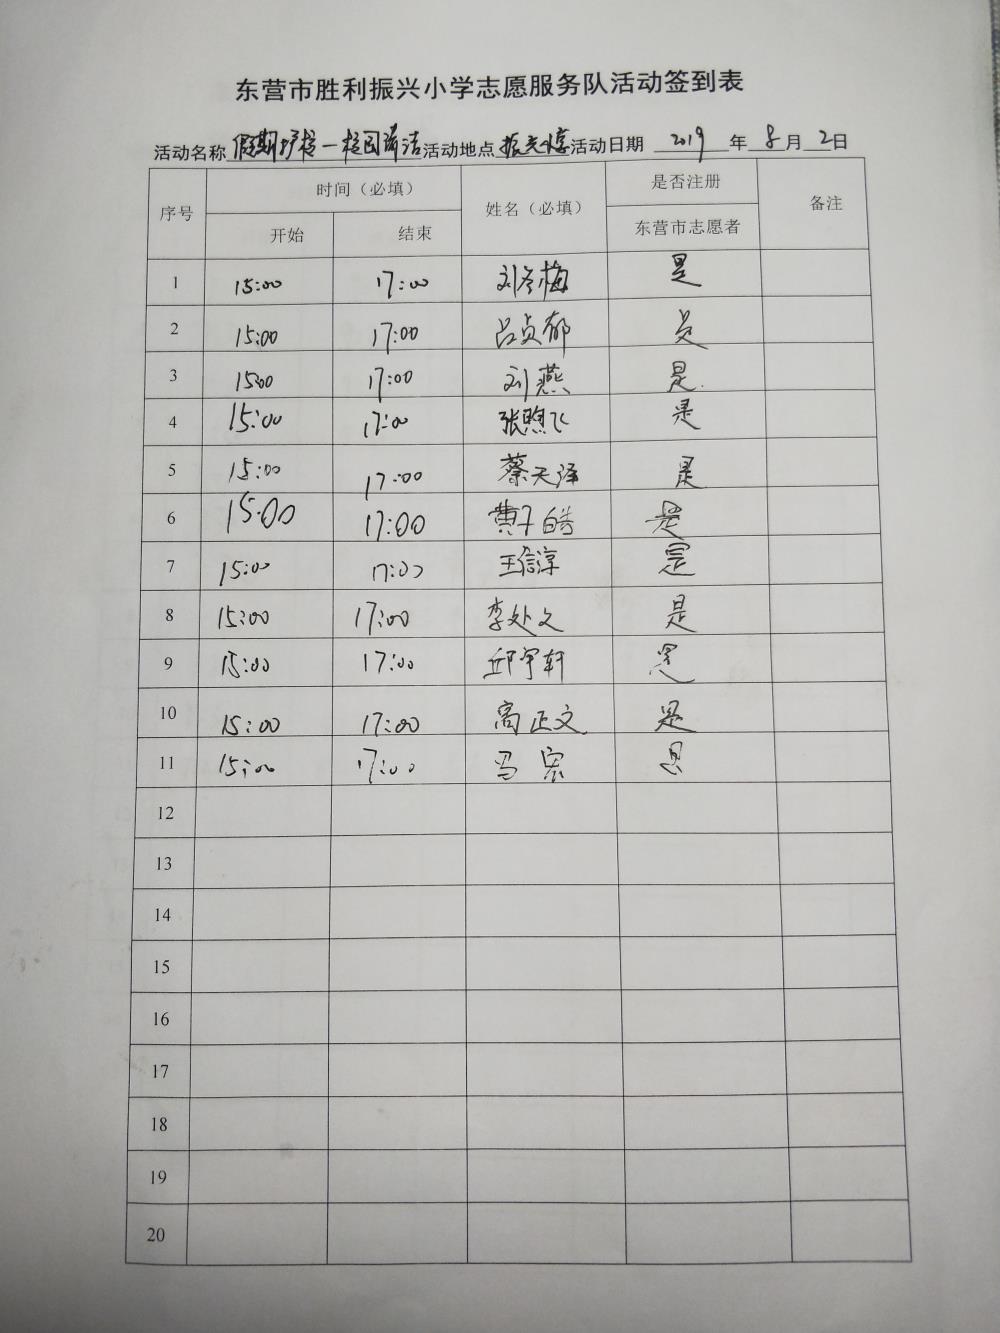 东营市胜利振兴小学志愿服务队活动签到表
活动名称 假期护校—校园清洁 活动地点 振兴 活动日期 2019 年 8 月 2 日
序号 时间（必填） 姓名（必填） 是否注册 备注
开始 结束 东营市志愿者
1 15:00 17:00 刘冬梅 是
2 15:00 17:00 吕贞郁 是
3 15:00 17:00 刘燕 是
4 15:00 17:00 张煦飞 是
5 15:00 17:00 蔡天泽 是
6 15:00 17:00 费子皓 是
7 15:00 17:00 王信淳 是
8 15:00 17:00 李处文 是
9 15:00 17:00 邱宇轩 是
10 15:00 17:00 高正文 是
11 15:00 17:00 冯宏 是
12
13
14
15
16
17
18
19
20